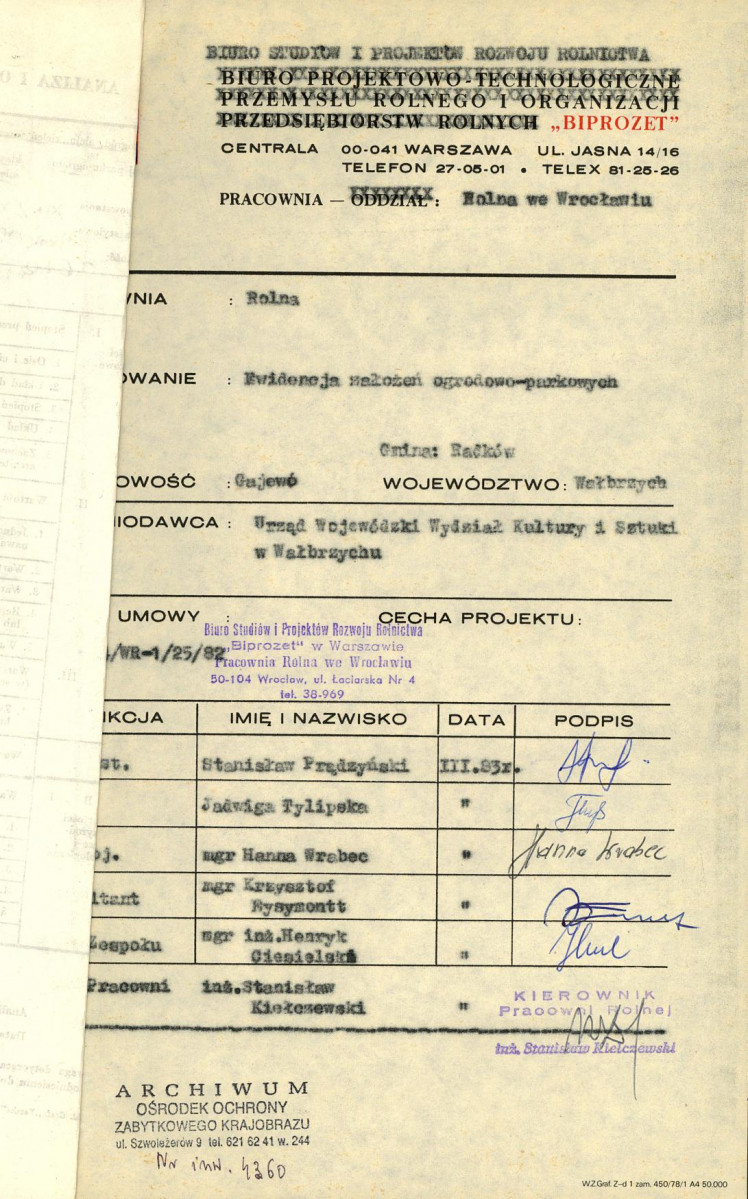 BIURO STUDIÓW I PROJEKTÓW ROZWOJU ROLNICTWA
BIURO PROJEKTOWO-TECHNOLOGICZNE
PRZEMYSŁU ROLNEGO I ORGANIZACJI
PRZEDSIĘBIORSTW ROLNYCH „BIPROZET"
CENTRALA 00-041 WARSZAWA UL. JASNA 14/16
TELEFON 27-05-01 • TELEX 81-25-26
PRACOWNIA — ODDZIAŁ: Rolna we Wrocławiu
WNIA : Rolna
OWANIE : Ewidencja założeń ogrodowo-parkowych
Gmina: Radków
OWOŚĆ : Gajewó WOJEWÓDZTWO: Wałbrzych
IODAWCA : Urząd Wojewódzki Wydział Kultury i Sztuki
w Wałbrzychu
UMOWY : CECHA PROJEKTU:
Biuro Studiów i Projektów Rozwoju Rolnictwa
„Biprozet" w Warszawie
/WR-1/25/82
Pracownia Rolna we Wrocławiu
50-104 Wrocław, ul. Łaciarska Nr 4
tel. 38-969
KCJA IMIĘ I NAZWISKO DATA PODPIS
st. Stanisław Prądzyński III.83r.
Jadwiga Tylipska "
oj. mgr Hanna Wrabec " Hanna Wrabec
ltant mgr Krzysztof
Rysymontt "
Zespołu mgr inż.Henryk
Ciesielski "
Pracowni inż.Stanisław
Kiełczewski "
KIEROWNIK
Pracowni Rolnej
inż. Stanisław Kiełczewski
ARCHIWUM
OŚRODEK OCHRONY
ZABYTKOWEGO KRAJOBRAZU
ul. Szwoleżerów 9 tel. 621 62 41 w. 244
Nr inw. 4360
WZGraf. Z-d 1 zam. 450/78/1 A4 50.000